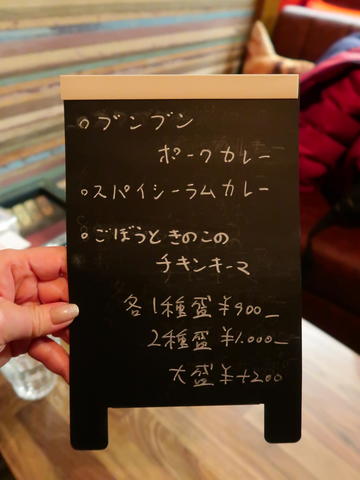 ○ブンブン
ポークカレー
○スパイシーラムカレー
○ごぼうときのこの
チキンキーマ
各1種盛¥900_
2種盛¥1.000_
大盛¥+200